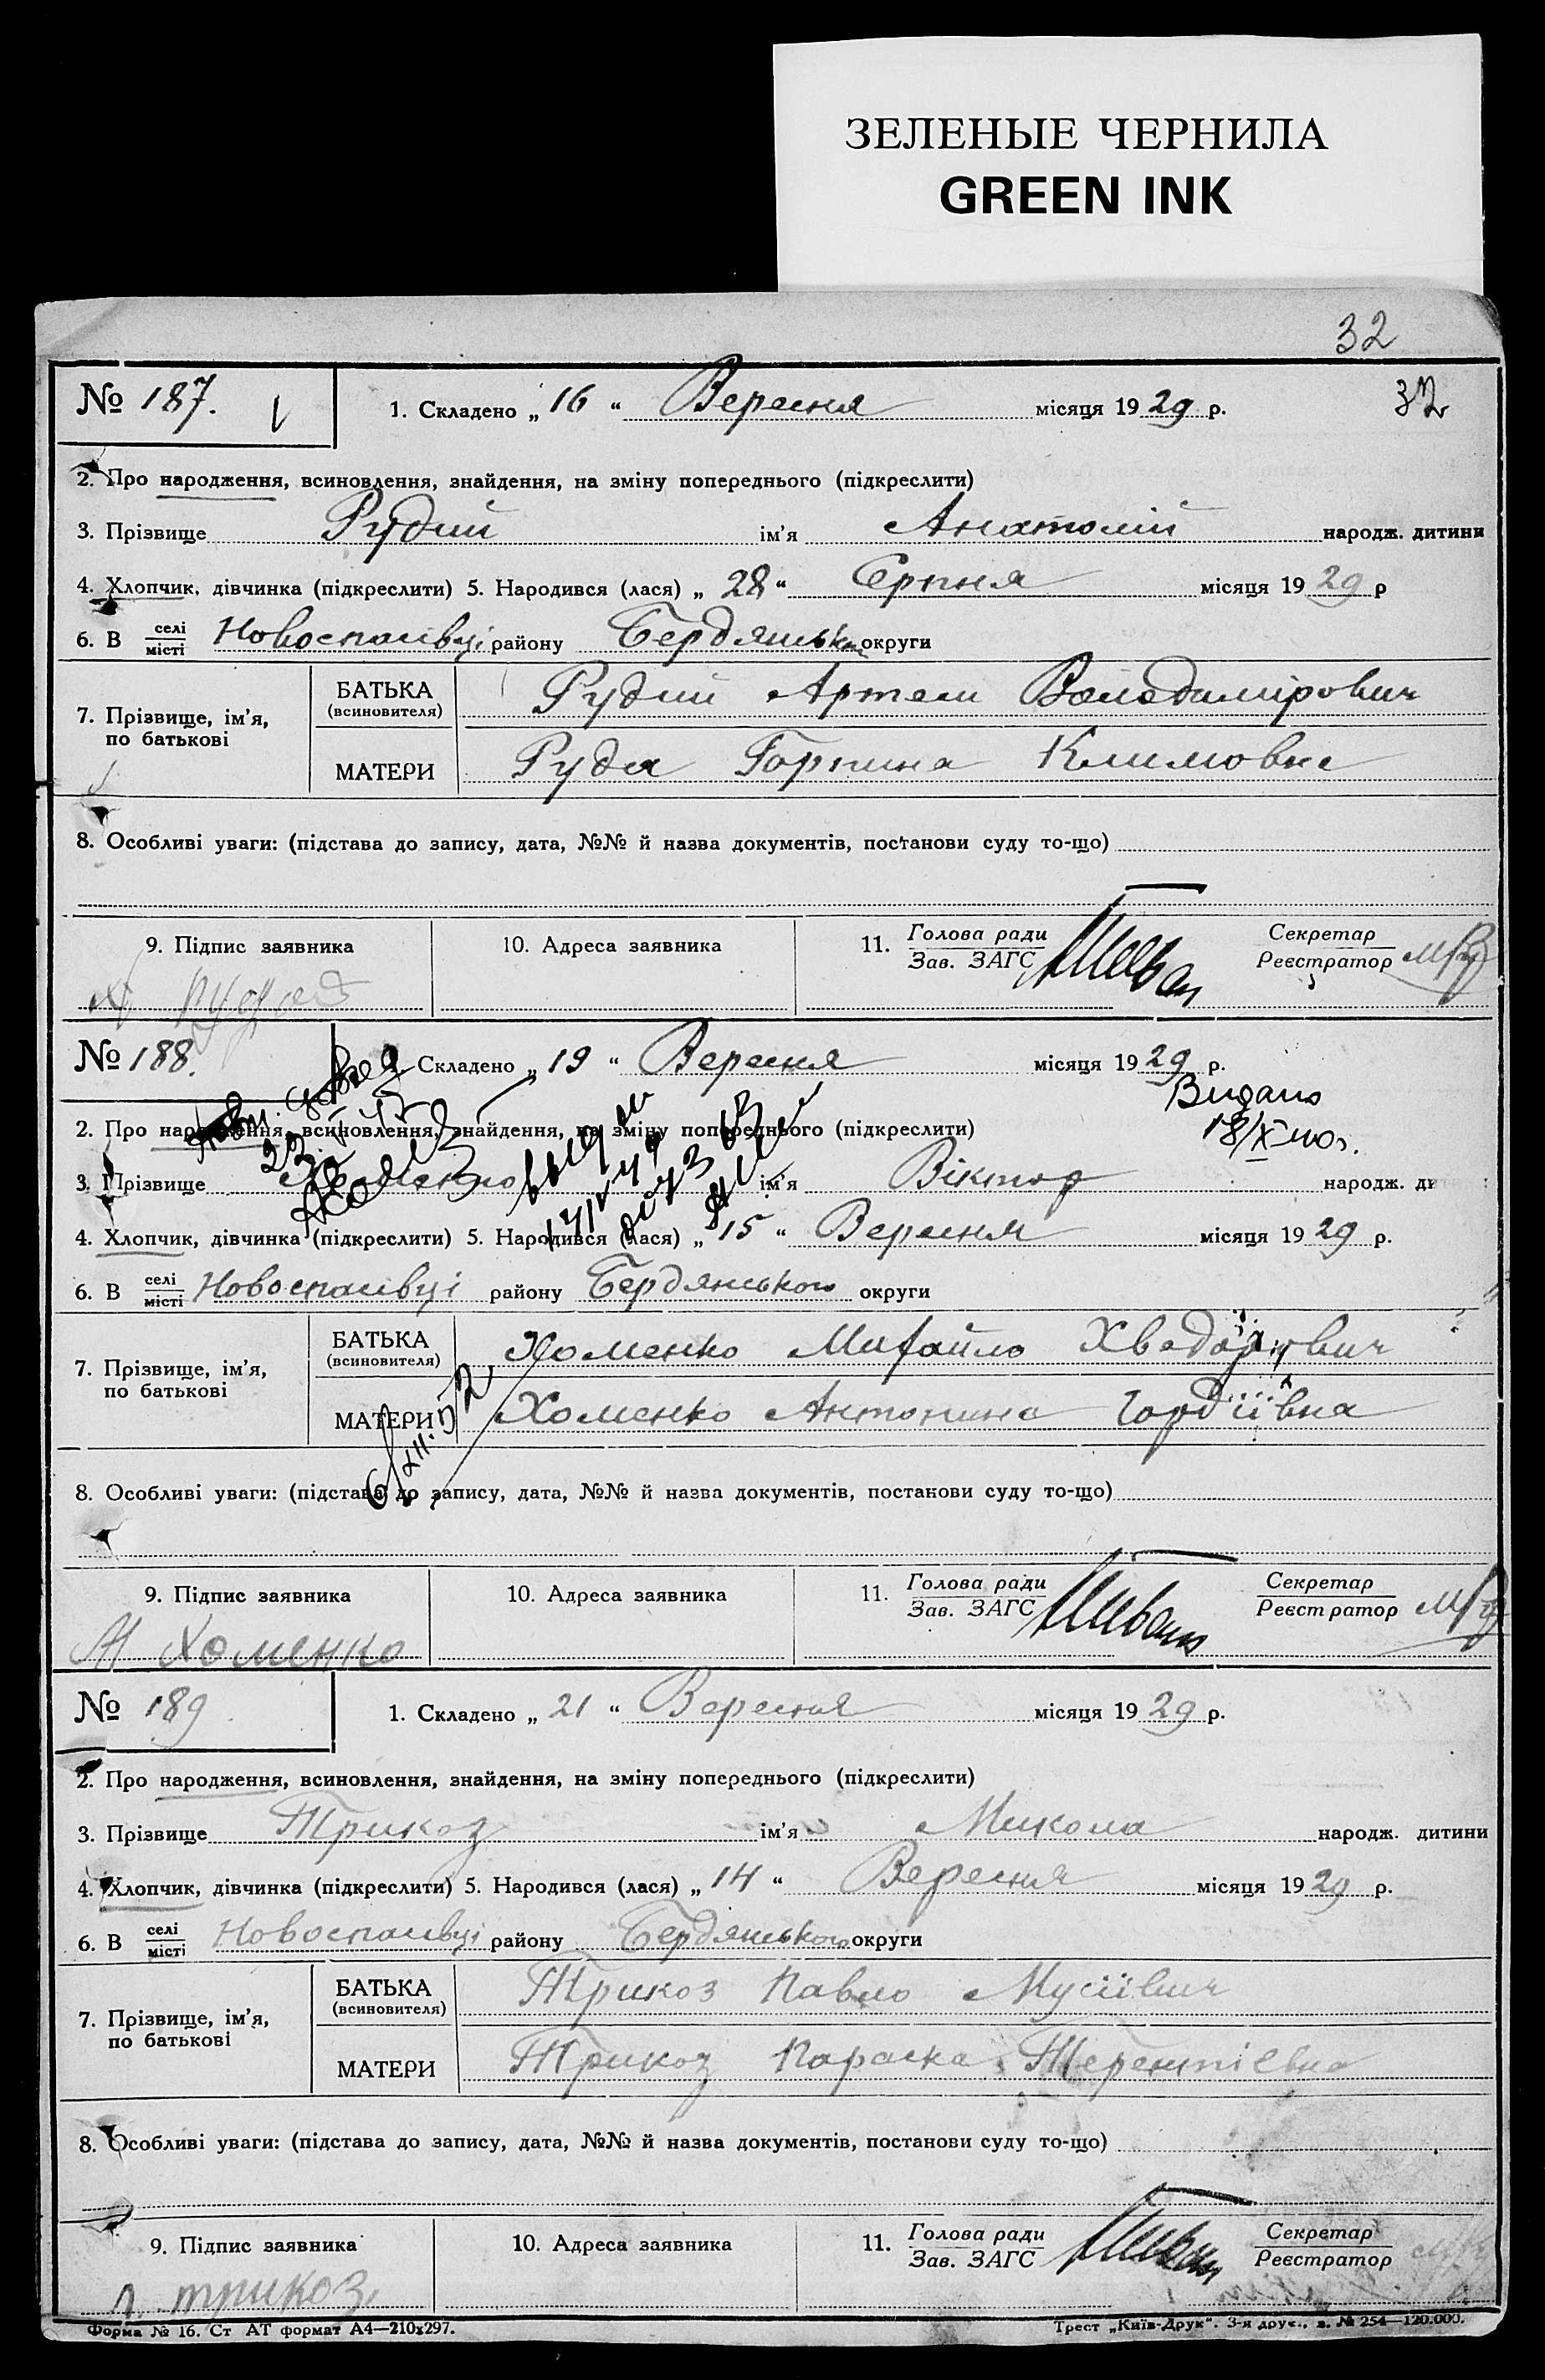 ЗЕЛЕНЫЕ ЧЕРНИЛА
GREEN INK
32
№ 187. 1. Складено „ 16 “ Вересня місяця 1929 р. 32
2. Про народження, всиновлення, знайдення, на зміну попереднього (підкреслити)
3. Прізвище Рудий ім'я Анатолій народж. дитини
4. Хлопчик, дівчинка (підкреслити) 5. Народився (лася) „ 28 “ Серпня місяця 1929 р
6. В селі місті Новоспасівці району Бердянської округи
7. Прізвище, ім'я, по батькові
БАТЬКА (всиновителя) Рудий Артем Володимірович
МАТЕРИ Руда Горпина Климовна
8. Особливі уваги: (підстава до запису, дата, №№ й назва документів, постанови суду то-що)
9. Підпис заявника 10. Адреса заявника 11. Голова ради Зав. ЗАГС Секретар Реєстратор
№ 188. Складено „ 19 “ Вересня місяця 1929 р.
Видано
18/X 40 г.
2. Про народження, всиновлення, знайдення, на зміну попереднього (підкреслити)
3. Прізвище Хоменко ім'я Віктор народж. ди
4. Хлопчик, дівчинка (підкреслити) 5. Народився (лася) „ 15 “ Вересня місяця 1929 р.
6. В селі місті Новоспасівці району Бердянського округи
7. Прізвище, ім'я, по батькові
БАТЬКА (всиновителя) Хоменко Михайло Хведорович
МАТЕРИ Хоменко Антонина Гордіївна
6/XII-52
8. Особливі уваги: (підстава до запису, дата, №№ й назва документів, постанови суду то-що)
9. Підпис заявника 10. Адреса заявника 11. Голова ради Зав. ЗАГС Секретар Реєстратор
М Хоменко
№ 189 1. Складено „ 21 “ Вересня місяця 1929 р.
2. Про народження, всиновлення, знайдення, на зміну попереднього (підкреслити)
3. Прізвище Трикоз ім'я Микола народж. дитини
4. Хлопчик, дівчинка (підкреслити) 5. Народився (лася) „ 14 “ Вересня місяця 1929 р.
6. В селі місті Новоспасівці району Бердянського округи
7. Прізвище, ім'я, по батькові
БАТЬКА (всиновителя) Трикоз Павло Мусіївич
МАТЕРИ Трикоз Параска Терентіевна
8. Особливі уваги: (підстава до запису, дата, №№ й назва документів, постанови суду то-що)
9. Підпис заявника 10. Адреса заявника 11. Голова ради Зав. ЗАГС Секретар Реєстратор
П. трикоз
Форма № 16. Ст АТ формат А4—210x297. Трест „Київ-Друк“. 3-я друк., з. № 254—120.000.